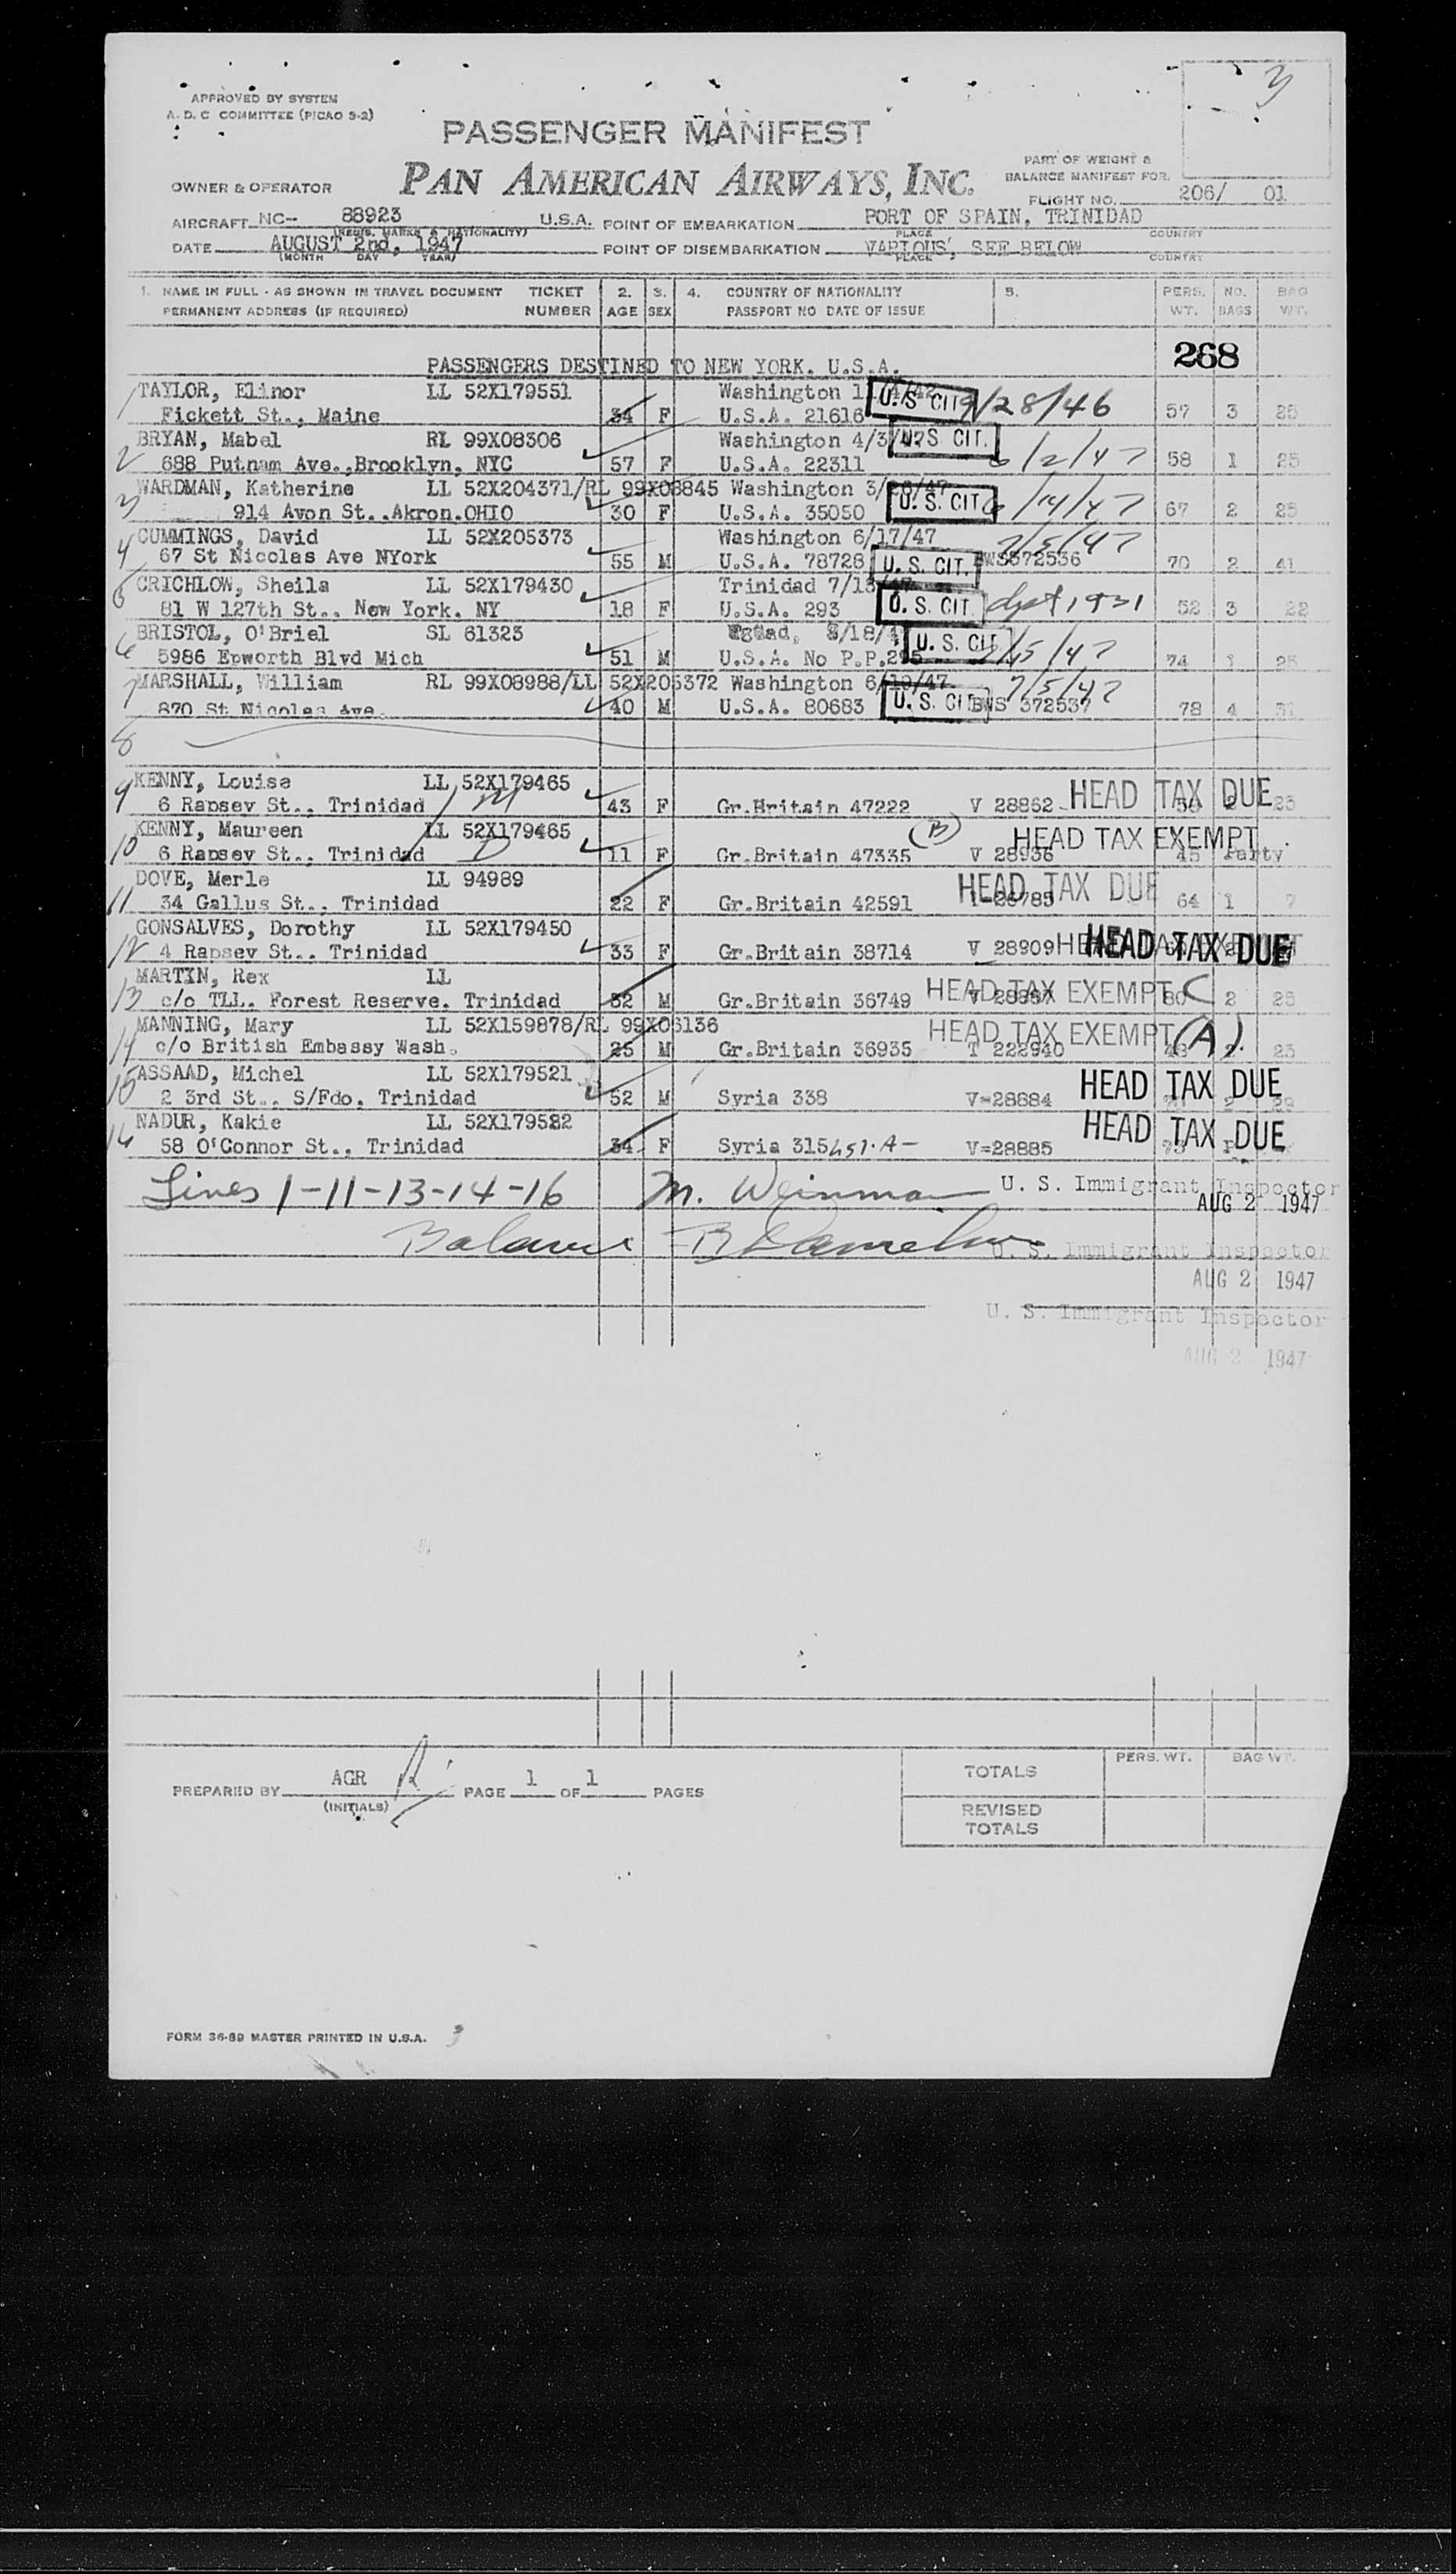 3
APPROVED BY SYSTEM
A. D. C COMMITTEE (PICAO 9-2)
PASSENGER MANIFEST
PART OF WEIGHT &
BALANCE MANIFEST FOR
OWNER & OPERATOR PAN AMERICAN AIRWAYS, INC. FLIGHT NO. 206/ 01
AIRCRAFT NC- 88923 U.S.A. POINT OF EMBARKATION PORT OF SPAIN, TRINIDAD
(REGIS. MARKS & NATIONALITY) PLACE COUNTRY
DATE AUGUST 2nd, 1947 POINT OF DISEMBARKATION VARIOUS, SEE BELOW
(MONTH DAY YEAR) PLACE COUNTRY
1. NAME IN FULL - AS SHOWN IN TRAVEL DOCUMENT TICKET 2. 3. 4. COUNTRY OF NATIONALITY 5. PERS. NO. BAG
PERMANENT ADDRESS (IF REQUIRED) NUMBER AGE SEX PASSPORT NO DATE OF ISSUE WT. BAGS WT.
268
PASSENGERS DESTINED TO NEW YORK. U.S.A.
1 TAYLOR, Elinor LL 52X179551 Washington U.S. CIT 9/28/46
Fickett St., Maine 34 F U.S.A. 21616 57 3 25
2 BRYAN, Mabel RL 99X08306 Washington 4/3/47 U.S CIT.
688 Putnam Ave.,Brooklyn, NYC 57 F U.S.A. 22311 6/2/47 58 1 25
3 WARDMAN, Katherine LL 52X204371/RL 99X08845 Washington U. S. CIT
914 Avon St.,Akron.OHIO 30 F U.S.A. 35050 6/14/47 67 2 25
4 CUMMINGS, David LL 52X205373 Washington 6/17/47 7/5/47
67 St Nicolas Ave NYork 55 M U.S.A. 78728 U. S. CIT. BWS572536 70 2 41
5 CRICHLOW, Sheila LL 52X179430 Trinidad
81 W 127th St., New York. NY 18 F U.S.A. 293 U. S. CIT 1931 52 3 22
6 BRISTOL, O'Briel SL 61323 U. S. CIT
5986 Epworth Blvd Mich 51 M U.S.A. No P.P.295 74 1 25
7 MARSHALL, William RL 99X08988/LL 52X205372 Washington 7/5/47
870 St Nicolas Ave. 40 M U.S.A. 80683 U. S. CIT BWS 372537 78 4 31
8
9 KENNY, Louise LL 52X179465 M
6 Rapsey St., Trinidad 43 F Gr.Britain 47222 V 28862 HEAD TAX DUE
10 KENNY, Maureen LL 52X179465 D (B) HEAD TAX EXEMPT
6 Rapsey St., Trinidad 11 F Gr.Britain 47335 V 28936 45 Party
11 DOVE, Merle LL 94989 HEAD TAX DUE
34 Gallus St., Trinidad 22 F Gr.Britain 42591 64 1 7
12 GONSALVES, Dorothy LL 52X179450
4 Rapsey St., Trinidad 33 F Gr.Britain 38714 V 28909 HEAD TAX DUE
13 MARTIN, Rex LL
c/o TLL. Forest Reserve. Trinidad 32 M Gr.Britain 36749 HEAD TAX EXEMPT C 80 2 25
14 MANNING, Mary LL 52X159878/RL 99X06136 HEAD TAX EXEMPT (A)
c/o British Embassy Wash. 25 M Gr.Britain 36935 T 222940 23
15 ASSAAD, Michel LL 52X179521
2 3rd St., S/Fdo, Trinidad 52 M Syria 338 V-28884 HEAD TAX DUE
16 NADUR, Kakie LL 52X179522 HEAD TAX DUE
58 O'Connor St., Trinidad 34 F Syria 315 V=28885
Lines 1-11-13-14-16 M. Weinman U. S. Immigrant Inspector
AUG 2 1947
Balance U. S. Immigrant Inspector
AUG 2 1947
U. S. Immigrant Inspector
AUG 2 1947
PREPARED BY AGR PAGE 1 OF 1 PAGES
(INITIALS)
PERS. WT. BAG WT.
TOTALS
REVISED
TOTALS
FORM 36-89 MASTER PRINTED IN U.S.A.